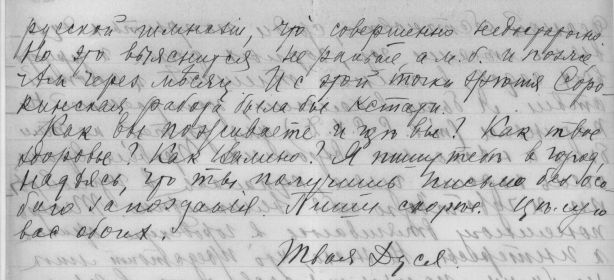 русской гимназіи, что совершенно недостаточно
Но это выяснится не раньше, а м. б. и позже
чѣм через мѣсяц. И с этой точки зрѣнія Соро-
кинская работа была бы кстати.
Как вы поживаете и гдѣ вы? Как твое
здоровье? Как Вилино? Я пишу тебѣ в город
надѣясь, что ты получишь письмо без осо-
баго запозданія. Пиши скорѣе. Цѣлую
вас обоих.
Твоя Дуся